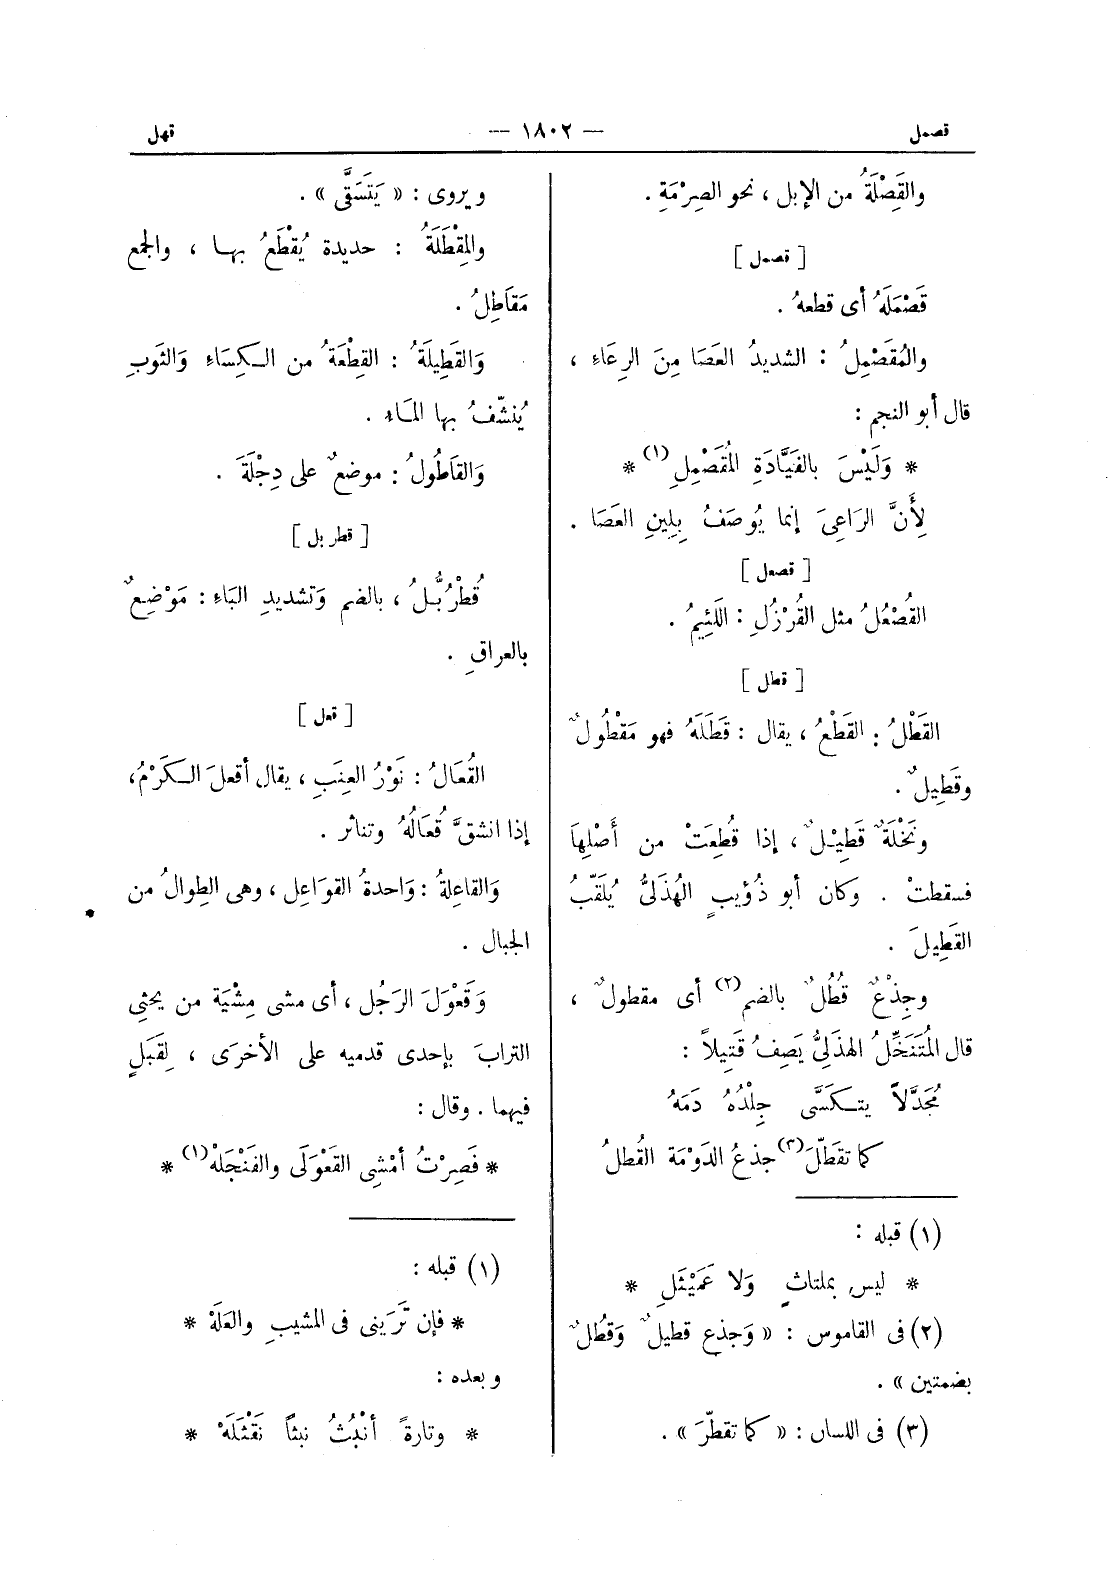 قصمل — ١٨٠٢ — قهل
والقَصْلَةُ من الإبل ، نحو الصِرْمَةِ .
[ قصمل ]
قَصْمَلَهُ أى قطعهُ .
والمُقَصْمِلُ : الشديدُ العَصَا مِنَ الرِعَاءِ ،
قال أبو النجم :
* وَلَيْسَ بالفَيَّادَةِ المُقَصْمِلِ (١) *
لِأَنَّ الرَاعِىَ إنما يُوصَفُ بِلِينِ العَصَا .
[ قصعل ]
القُصْعُلُ مثل القُرْزُلِ : اللَئِيمُ .
[ قطل ]
القَطْلُ : القَطْعُ ، يقال : قَطَلَهُ فهو مَقْطُولٌ
وقَطِيلٌ .
ونَخْلَةٌ قَطِيْلٌ ، إذا قُطِعَتْ من أَصْلِهَا
فسقطتْ . وكان أبو ذُؤيبٍ الهُذَلىُّ يُلَقّبُ
القَطِيلَ .
وجِذْعٌ قُطُلٌ بالضم (٢) أى مقطولٌ ،
قال المُتَنَخِّلُ الهذلىُّ يَصِفُ قَتِيلاً :
مُجَدَّلاً يتكسَّى جِلْدُهُ دَمَهُ
كما تقَطّلَ (٣) جذعُ الدَوْمَة القُطلُ
(١) قبله :
* ليس بملتاثٍ وَلا عَمَيْثَلِ *
(٢) فى القاموس : « وَجذع قطيلٌ وَقُطُلٌ
بضمتين » .
(٣) فى اللسان : « كما تقطّرَ » .
ويروى : « يَتَسَقَّى » .
والمِقْطَلَةُ : حديدة يُقْطَعُ بها ، والجمع
مَقَاطِلُ .
وَالقَطِيلَةُ : القِطْعَةُ من الكِسَاءِ وَالثَوبِ
يُنشّفُ بها المَاء .
وَالقَاطُولُ : موضعٌ على دِجْلَةَ .
[ قطربل ]
قُطْرُبُّلُ ، بالضم وَتشديدِ البَاءِ : مَوْضِعٌ
بالعراقِ .
[ قعل ]
القُعَالُ : نَوْرُ العِنَبِ ، يقال أقعلَ الكَرْمُ ،
إذا انشقَّ قُعَالُهُ وتناثر .
وَالقاعِلةُ : وَاحدةُ القوَاعِل ، وهى الطِوالُ من
الجبال .
وَقَعْوَلَ الرَجُل ، أى مشى مِشْيَة من يحثِى
الترابَ بإحدى قدميه على الأخرَى ، لِقَبَلٍ
فيهما . وقال :
* فَصِرْتُ أمْشِى القَعْوَلَى والفَنْجَلَهْ (١) *
(١) قبله :
* فإن تَرَينى فى المشيبِ والعَلَهْ *
وبعده :
* وتارةً أنْبُثُ نبثاً نَقْثَلَهْ *